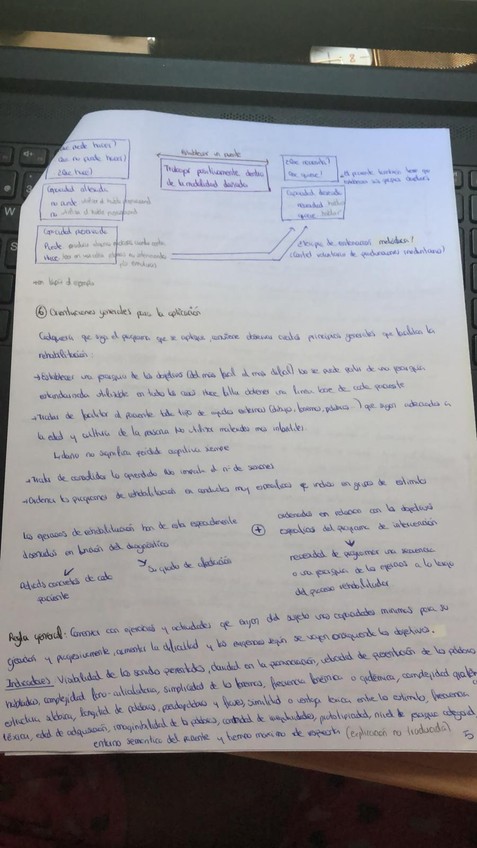 ¿Qué puede hacer?
¿Qué no puede hacer?
¿Qué hace?
Capacidad alterada
no puede utilizar el habla proposicional
no utiliza el habla proposicional
Capacidad preservada
Puede
Hace
Establecer un puente
Trabajar positivamente dentro
de la modalidad deseada
¿Qué necesita?
¿Qué quiere?
Capacidad deseada
necesidad hablar
quiere hablar
El paciente también tiene que
sus propios
¿Terapia de entonación melódica?
¿Control voluntario de producciones involuntarias?
⑥ Orientaciones generales para la aplicación
Cualquiera que sea el programa que se aplique, conviene observar ciertos principios generales que faciliten la
rehabilitación:
→ Establecer una jerarquía de los objetivos (del más fácil al más difícil) No se puede partir de una jerarquía
estandarizada utilizable en todos los casos. Hace falta obtener una línea base de cada paciente
→ Tratar de facilitar al paciente todo tipo de ayuda externa (dibujo, bromas, ) que sean adecuadas a
la edad y cultura de la persona. No utilizar materiales muy infantiles.
no significa pérdida cognitiva siempre
→ Tratar de consolidar lo aprendido. No importa el nº de sesiones
→ Ordenar los programas de rehabilitación en conductas muy específicas que indican un grupo de estímulos
Los ejercicios de rehabilitación han de estar especialmente
diseñados en función del diagnóstico
Déficits concretos de cada
paciente
Su grado de afectación
+
ordenados en relación con los objetivos
específicos del programa de intervención
necesidad de programar una secuencia
o una jerarquía de los ejercicios a lo largo
del proceso rehabilitador
Regla general: Comenzar con ejercicios y actividades que exijan del sujeto unas capacidades mínimas para su
ejecución y progresivamente, aumentar la dificultad y las exigencias según se vayan consiguiendo los objetivos.
Indicadores: Visibilidad de los sonidos presentados, claridad en la pronunciación, velocidad de presentación de las palabras
habladas, complejidad fono-articulatoria, simplicidad de los fonemas, frecuencia fonémica o grafémica, complejidad
estructura silábica, longitud de palabras, pseudopalabras y frases, similitud o vecindad léxica entre los estímulos, frecuencia
léxica, edad de adquisición, imaginabilidad de la palabra, cantidad de significados, prototipicidad, nivel de jerarquía categorial,
entorno semántico del paciente y tiempo máximo de respuesta (explicación no traducida)
5